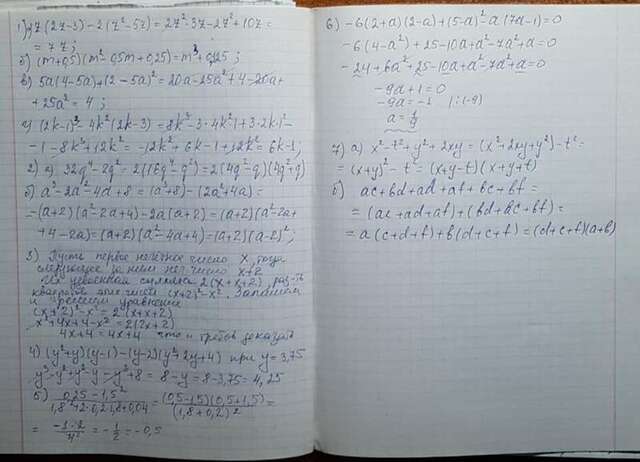 1) z(2z-3)-2(z²-5z)=2z²-3z-2z²+10z=
=7z;
б) (m+0,5)(m²-0,5m+0,25)=m³+0,125;
в) 5a(4-5a)+(2-5a)²=20a-25a²+4-20a+
+25a²=4;
г) (2k-1)³-4k²(2k-3)=8k³-3·4k²·1+3·2k·1²-
-1-8k³+12k²=-12k²+6k-1+12k²=6k-1;
2) а) 32q⁴-2q²=2(16q⁴-q²)=2(4q²-q)(4q²+q)
б) a³-2a²-4a+8=(a³+8)-(2a²+4a)=
=(a+2)(a²-2a+4)-2a(a+2)=(a+2)(a²-2a+
+4-2a)=(a+2)(a²-4a+4)=(a+2)(a-2)²;
3) Пусть первое нечётное число x, тогда
следующее за ним неч число x+2
Их удвоенная сумма 2(x+x+2), раз-ть
квадратов этих чисел (x+2)²-x². Запишем
и решим уравнение
(x+2)²-x²=2(x+x+2)
x²+4x+4-x²=2(2x+2)
4x+4=4x+4 что и требов доказать
4) (y²+y)(y-1)-(y-2)(y²+2y+4) при y=3,75
y³-y²+y²-y-y³+8=8-y=8-3,75=4,25
5) 0,25-1,5² / 1,8²+2·0,2·1,8+0,04 = (0,5-1,5)(0,5+1,5) / (1,8+0,2)² =
= -1·2 / 4 = -1/2 = -0,5
6) -6(2+a)(2-a)+(5-a)²-a(7a-1)=0
-6(4-a²)+25-10a+a²-7a²+a=0
-24+6a²+25-10a+a²-7a²+a=0
-9a+1=0
-9a=-1 |:(-9)
a=1/9
7) а) x²-t²+y²+2xy=(x²+2xy+y²)-t²=
=(x+y)²-t²=(x+y-t)(x+y+t)
б) ac+bd+ad+af+bc+bf=
=(ac+ad+af)+(bd+bc+bf)=
=a(c+d+f)+b(d+c+f)=(d+c+f)(a+b)